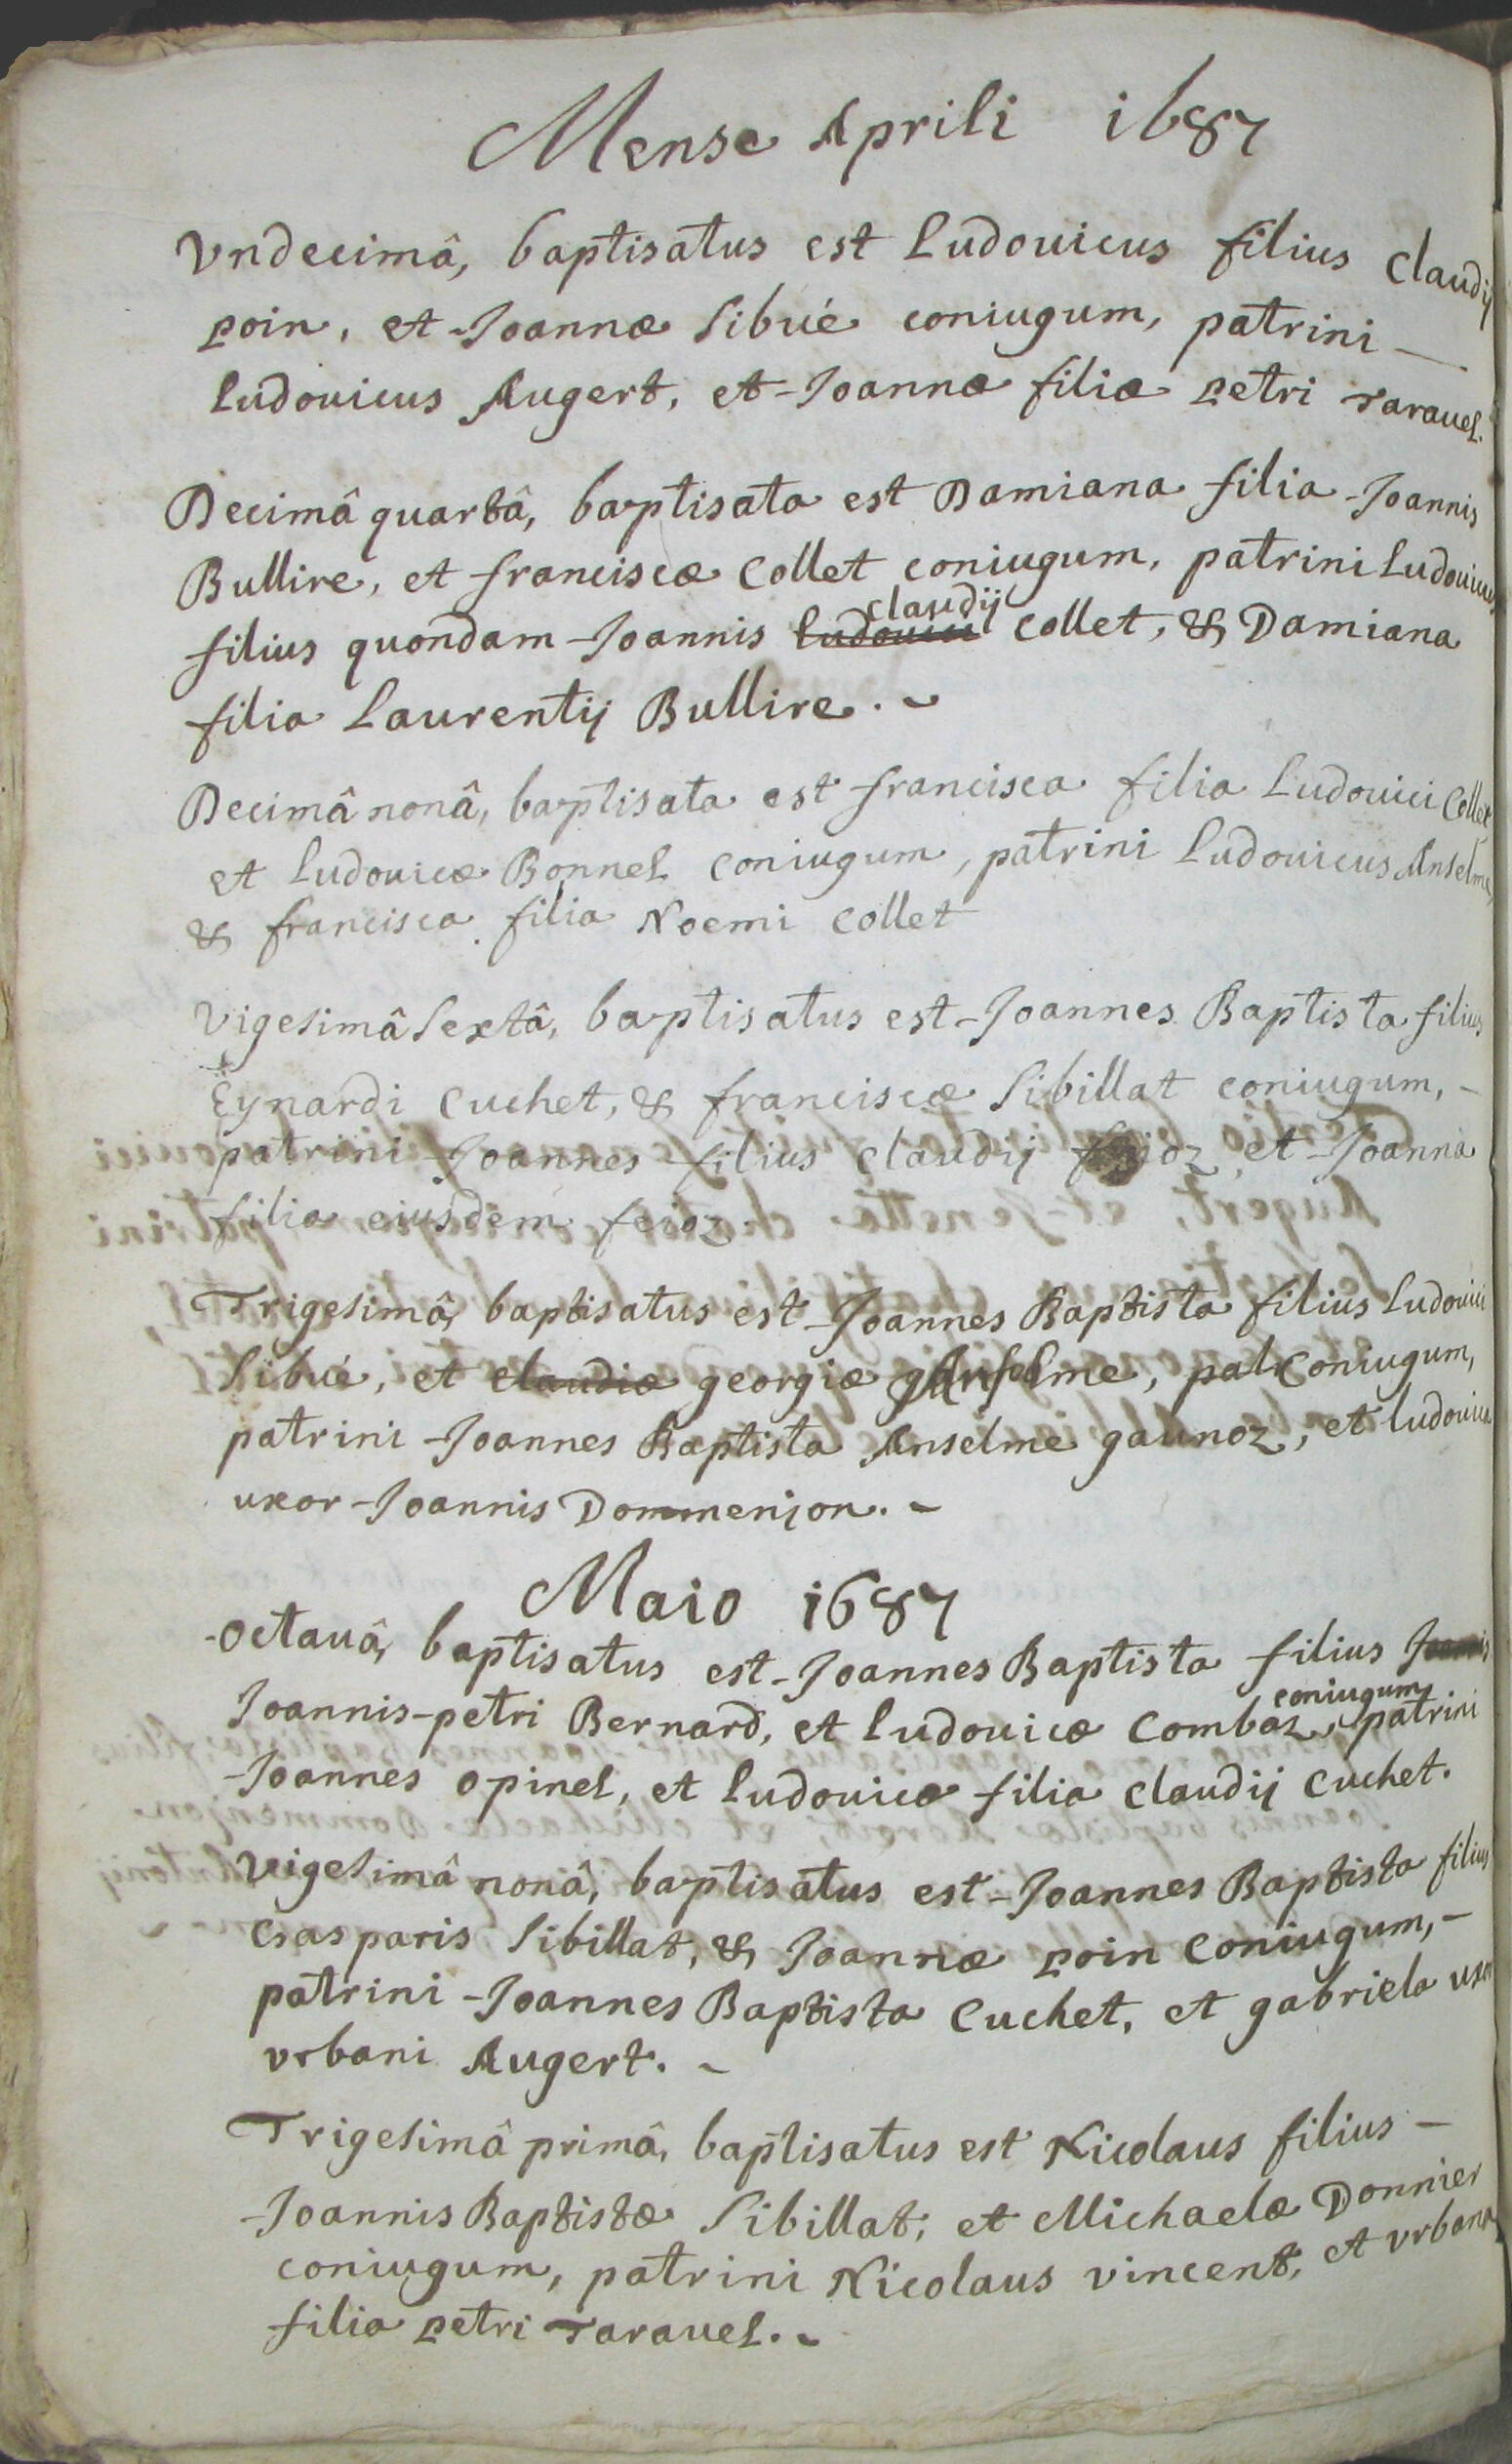 Mense Aprili 1687
Vndecimâ, baptisatus est Ludouicus filius Claudij
poin, et Joannæ Sibué coniugum, patrini —
Ludouicus Augert, et Joannæ filiæ petri Tarauel.
Decimâ quartâ, baptisata est Damiana filia Joannis
Bullire, et franciscæ Collet coniugum, patrini Ludouicus
claudij
filius quondam Joannis Ludouici Collet, & Damiana
filia Laurentij Bullire. -
Decimâ nonâ, baptisata est francisca filia Ludouici Collet
et Ludouicæ Bonnel coniugum, patrini Ludouicus Anselme,
& francisca filia Noemi Collet
Vigesimâ Sextâ, baptisatus est Joannes Baptista filius
Eÿnardi Cuchet, & franciscæ Sibillat coniugum, -
patrini Joannes filius Claudij et Joanna
filia eiusdem feioz.
Trigesimâ, baptisatus est Joannes Baptista filius Ludouici
Sibué, et claudiæ georgiæ Anselme, coniugum,
patrini Joannes Baptista Anselme gaunoz, et Ludouica
uxor Joannis Dommenjon. -
Maio 1687
Octauâ, baptisatus est Joannes Baptista filius Joannis
coniugum,
Joannis-petri Bernard, et Ludouicæ Combaz, patrini
Joannes opinel, et Ludouica filia Claudij Cuchet.
Vigesimâ nonâ, baptisatus est Joannes Baptista filius
Gasparis Sibillat, & Joannæ poin Coniugum, -
patrini Joannes Baptista Cuchet, et gabriela uxor
vrbani Augert. -
Trigesimâ primâ, baptisatus est Nicolaus filius —
Joannis Baptistæ Sibillat, et Michaelæ Donnier
coniugum, patrini Nicolaus vincent, et vrbana
filia petri Tarauel. -